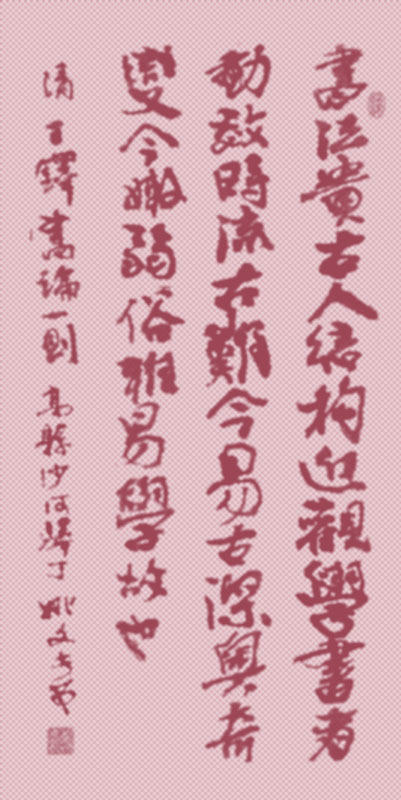 書法貴古人結构近觀學書者
動效時流古難今易古深奧奇
變今嫩弱俗雅易學故也
清王鐸書論一則高縣沙河